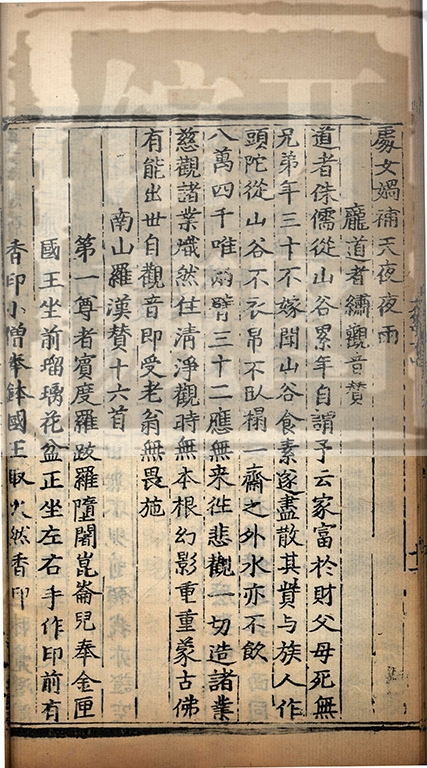 處女媧補天夜夜雨
龐道者繡觀音贊
道者侏儒從山谷累年自謂予云家富於財父母死無
兄弟年三十不嫁閏山谷食素遂盡散其貲与族人作
頭陀從山谷不衣帛不臥榻一齋之外水亦不飲
八萬四千唯兩臂三十二應無来徃悲觀一切造諸業
慈觀諸業熾然住清淨觀時無本根幻影重重蒙古佛
有能出世自觀音即受老翁無畏施
南山羅漢贊十六首
第一尊者賓度羅跋羅墮闍崑崙兒奉金匣
國王坐前瑠璃花盆正坐左右手作印前有
香印小僧奉鉢國王取火然香印